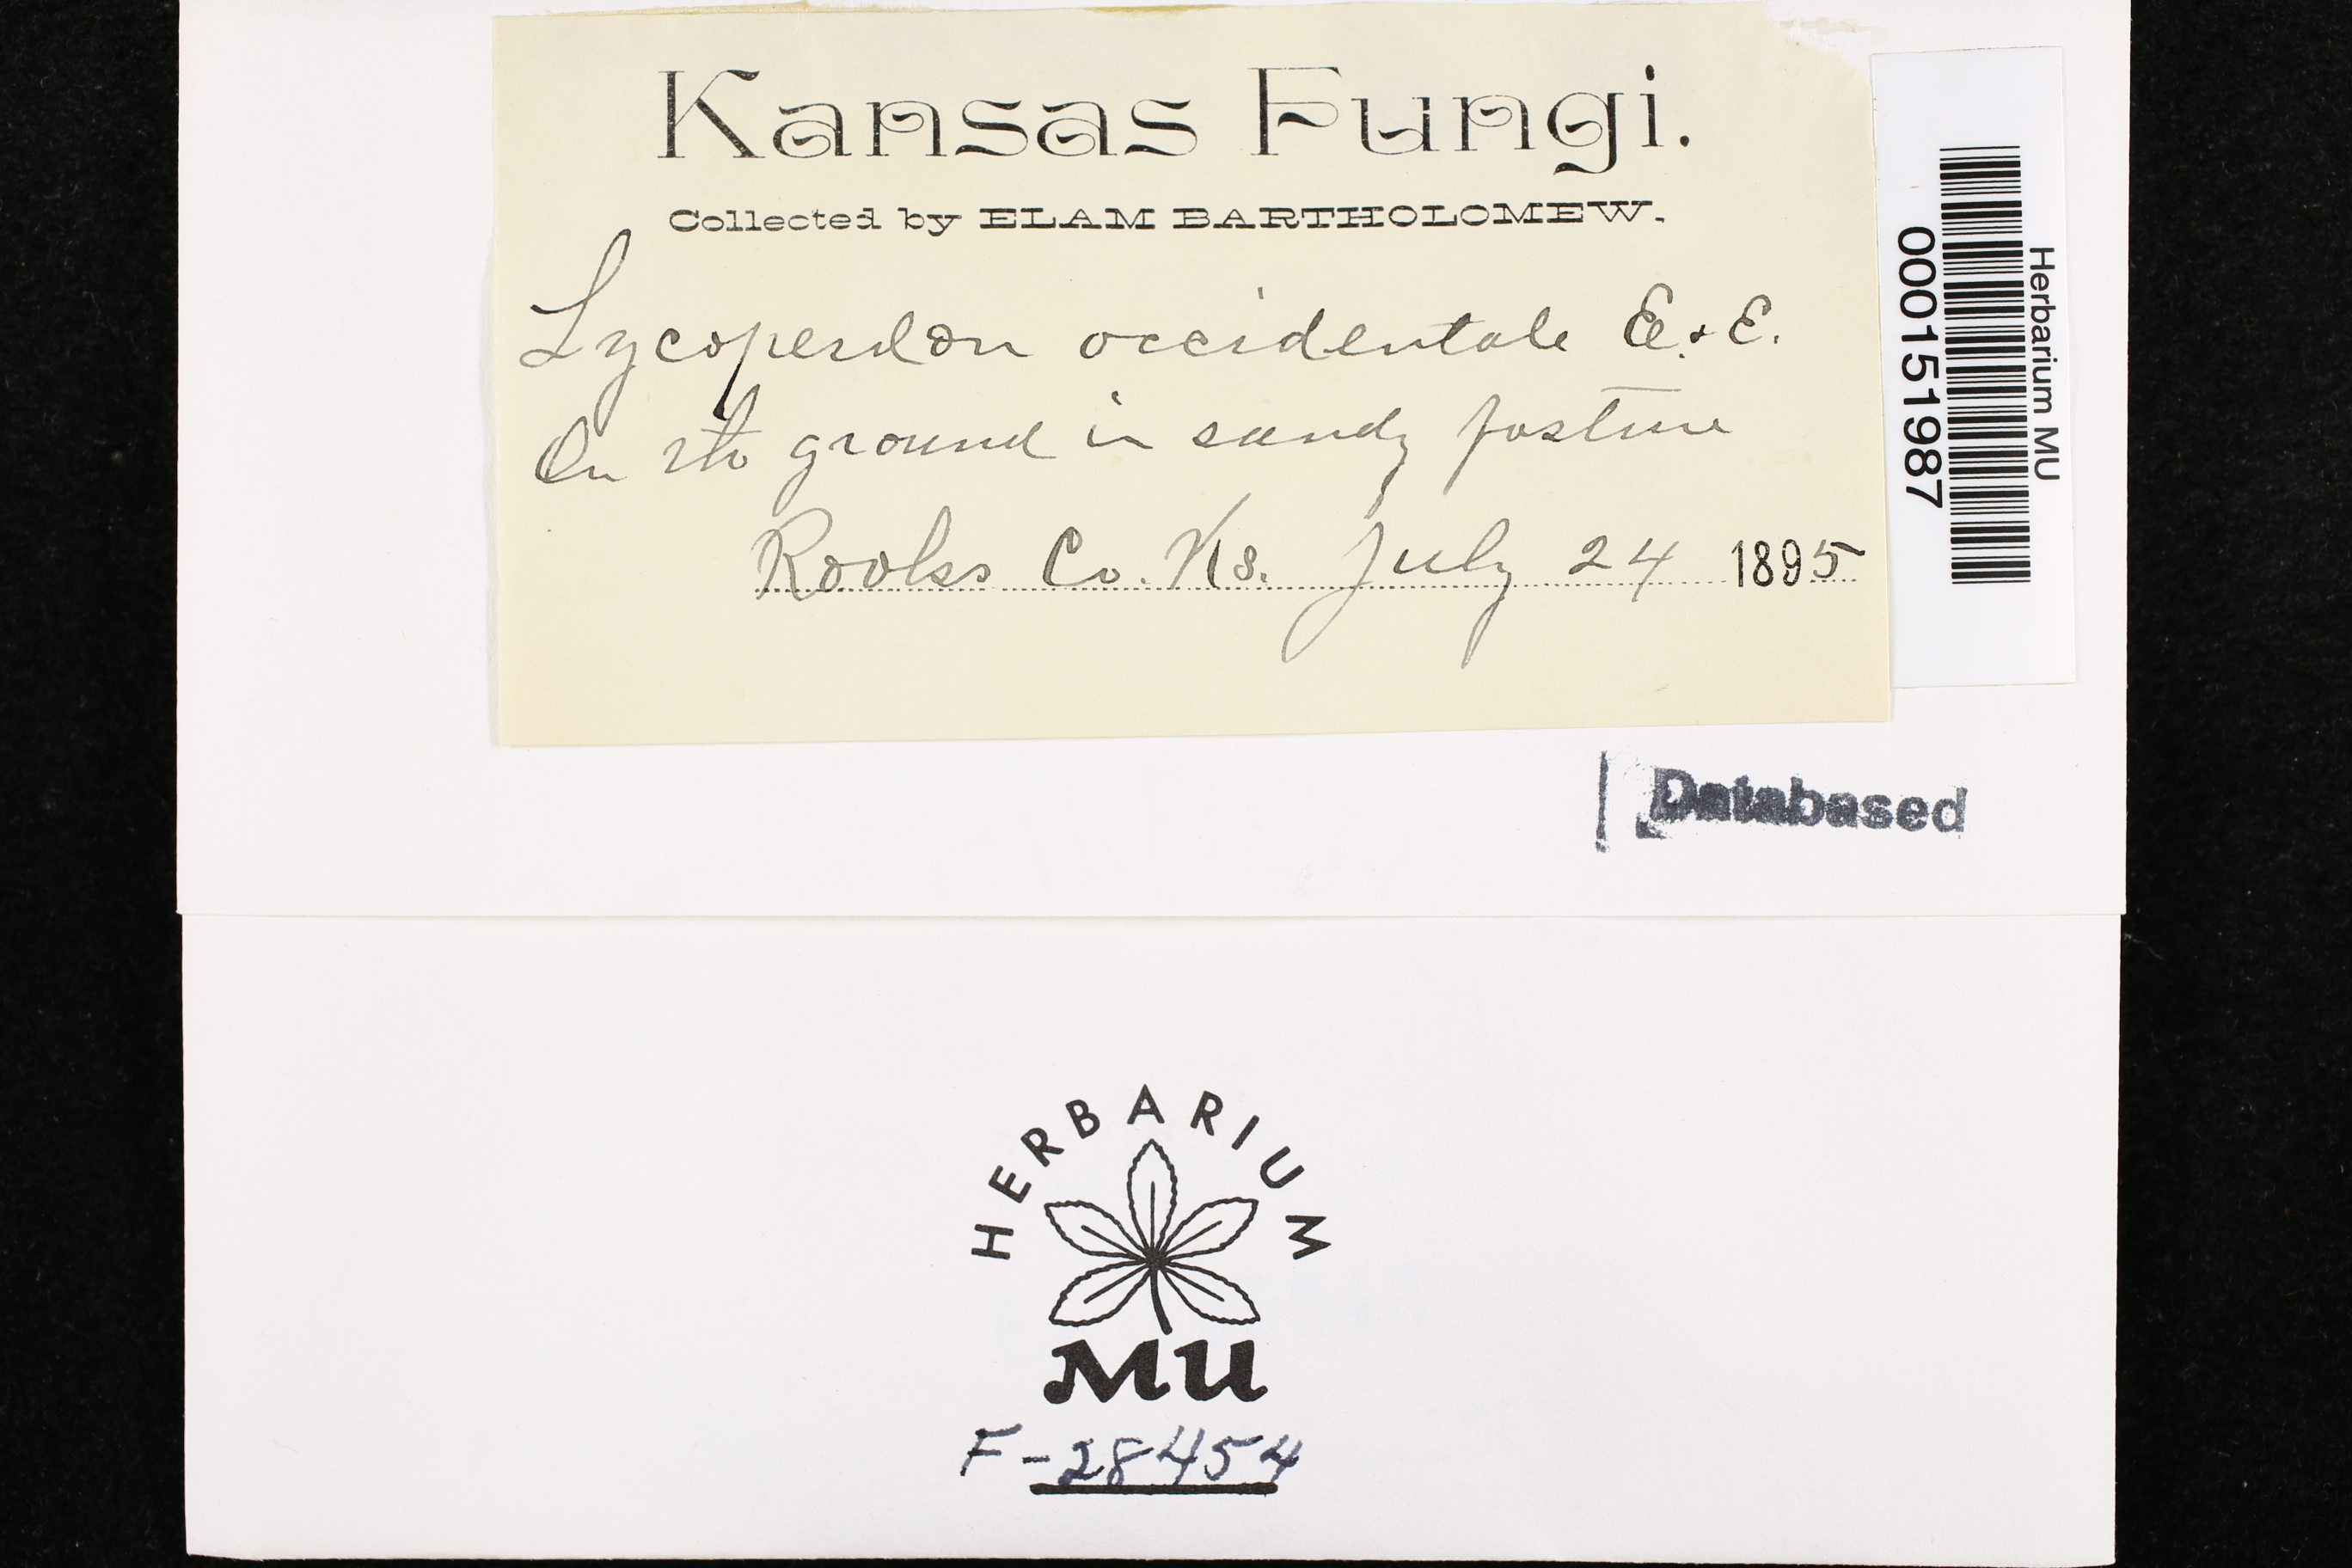 Kansas Fungi.
Collected by ELAM BARTHOLOMEW.
Lycoperdon occidentale E. & E.
On the ground in sandy pasture
Rooks Co. Ks. July 24 1895
Herbarium MU
000151987
Databased
HERBARIUM
MU
F-28454